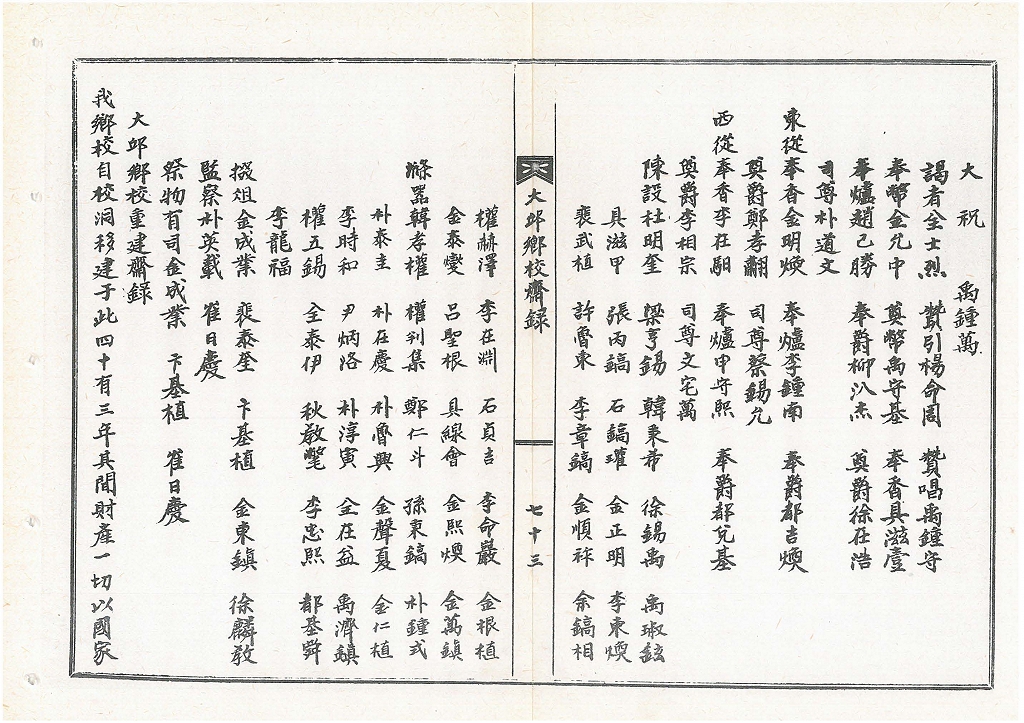 大祝 禹鍾萬
謁者全士烈 贊引楊命周 贊唱禹鍾守
奉幣金允中 奠幣禹守基 奉香具滋壹
奉爐趙己勝 奉爵柳汃杰 奠爵徐在浩
司尊朴道文
東從奉香金明煥 奉爐李鍾南 奉爵都吉煥
奠爵鄭孝翻 司尊蔡錫允
西從奉香李在馹 奉爐申守熙 奉爵都兌基
奠爵李相宗 司尊文宅萬
陳設杜明奎 梁亨錫 韓秉希 徐錫禹 禹琡鉉
具滋甲 張丙鎬 石鎬瓘 金正明 李東煥
裵武植 許魯東 李章鎬 金順祚 余鎬相
大邱鄉校齋録
七十三
權赫澤 李在淵 石貞吉 李命嚴 金根植
金泰燮 呂聖根 具線會 金熙煥 金萬鎮
滌器韓孝權 權刋集 鄭仁斗 孫東鎬 朴鐘式
朴泰圭 朴在慶 朴魯興 金聲夏 金仁植
李時和 尹炳洛 朴淳寅 全在益 禹濟鎮
權五錫 全泰伊 秋敎 李忠熙 都基舜
李龍福
掇俎金成業 裵泰奎 卞基植 金東鎮 徐麟敎
監察朴英載 崔日慶
祭物有司金成業 卞基植 崔日慶
大邱鄉校重建齋錄
我鄉校自校洞移建于此四十有三年其間財產一切以國家